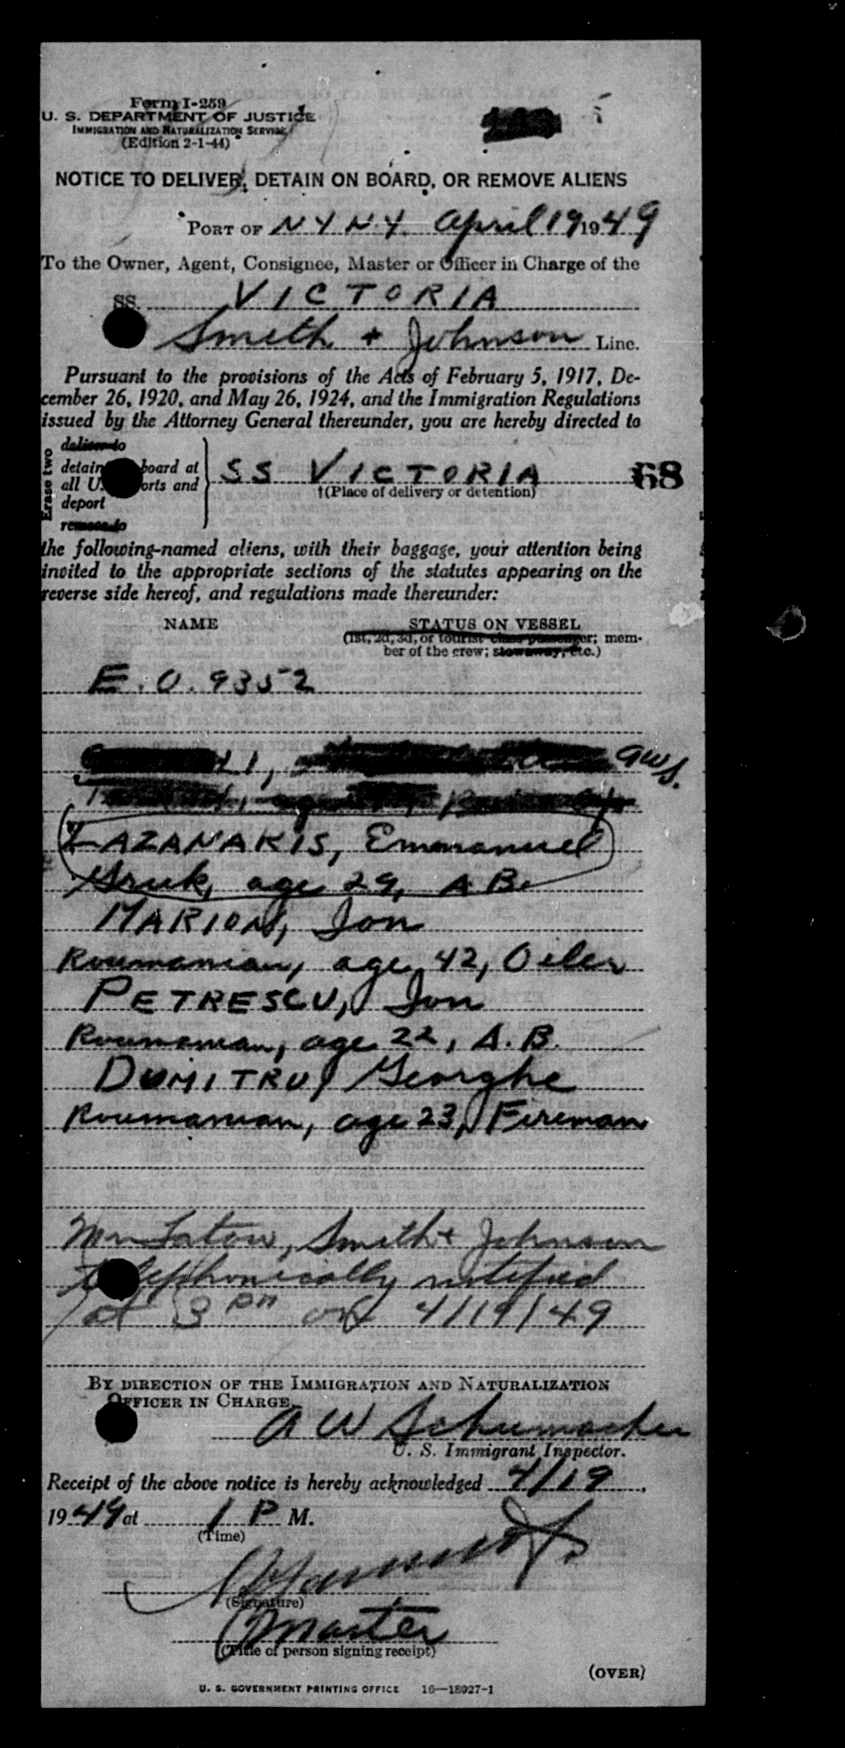 Form I-259
U. S. DEPARTMENT OF JUSTICE
IMMIGRATION AND NATURALIZATION SERVICE
(Edition 2-1-44)
NOTICE TO DELIVER, DETAIN ON BOARD, OR REMOVE ALIENS
PORT OF N.Y. N.Y. April 19 1949
To the Owner, Agent, Consignee, Master or Officer in Charge of the
SS. VICTORIA
Smith + Johnson Line.
Pursuant to the provisions of the Acts of February 5, 1917, De-
cember 26, 1920, and May 26, 1924, and the Immigration Regulations
issued by the Attorney General thereunder, you are hereby directed to
Erase two
deliver to
detain board at
all U. orts and
deport
remove to
SS VICTORIA
68
†(Place of delivery or detention)
the following-named aliens, with their baggage, your attention being
invited to the appropriate sections of the statutes appearing on the
reverse side hereof, and regulations made thereunder:
NAME STATUS ON VESSEL
(1st, 2d, 3d, or tourist class passenger; mem-
ber of the crew; stowaway, etc.)
E.O. 9352
aws.
LAZANAKIS, Emmanuel
Greek, age 29, A B.
MARION, Ion
Roumanian, age 42, Oiler
PETRESCU, Ion
Roumanian, age 22, A.B.
DUMITRU, Georghe
Roumanian, age 23, Fireman
Smith + Johnson
telephonically notified
at 3 PM on 4/19/49
BY DIRECTION OF THE IMMIGRATION AND NATURALIZATION
OFFICER IN CHARGE.
A W Schumacher
U. S. Immigrant Inspector.
Receipt of the above notice is hereby acknowledged 4/19,
1949 at 1 P M.
(Time)
(Signature)
Master
(Title of person signing receipt)
(OVER)
U. S. GOVERNMENT PRINTING OFFICE 16—18927-1